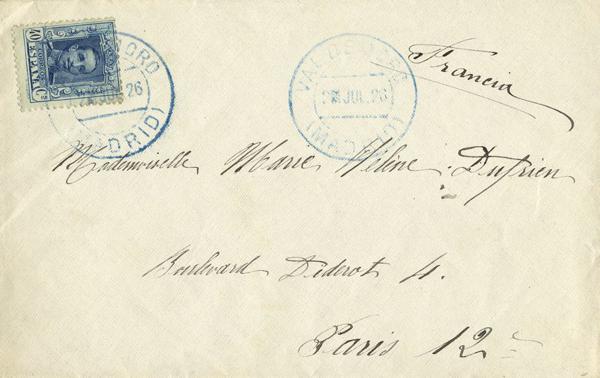 40
ESPAÑA
Cs
DORO
26
(MADRID)
VALDEMORO
JUL. 26
(MADRID)
Francia
Mademoiselle Marie Hélène Dufrien
Boulevard Diderot 4.
Paris 12e